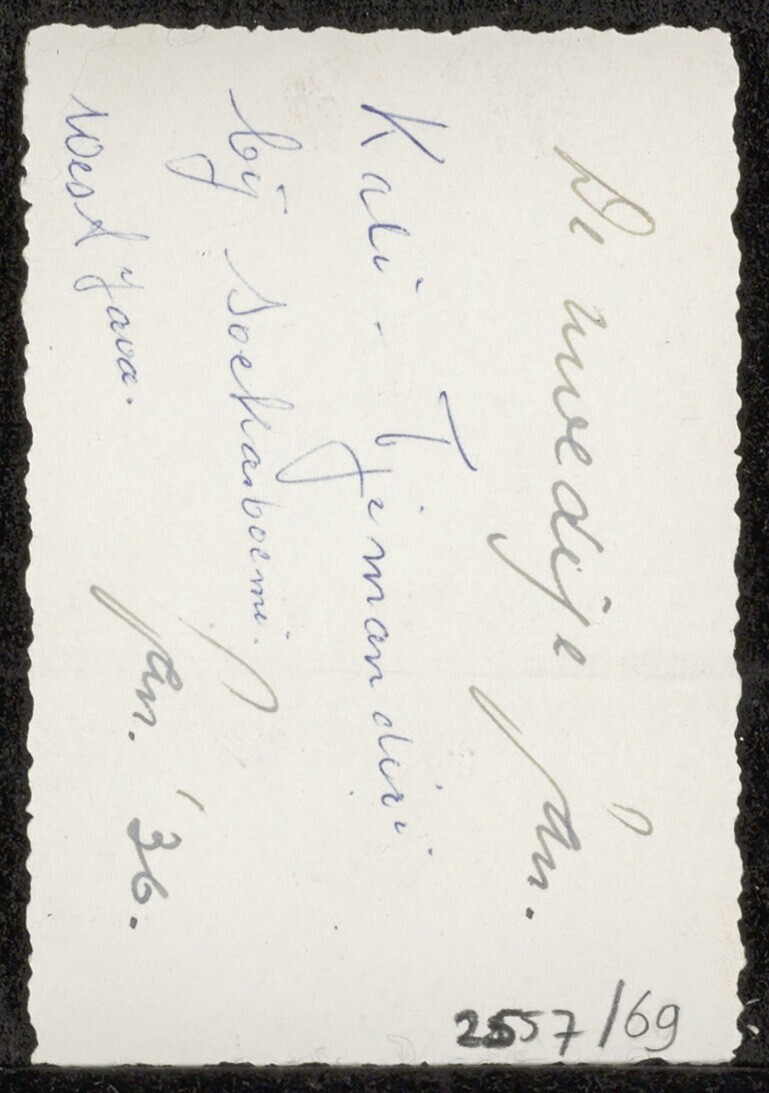 De uwe dije Jan.
Kali - Tjimandiri
bij Soekaboemi.
West Java.
Jan. '36.
2557/69